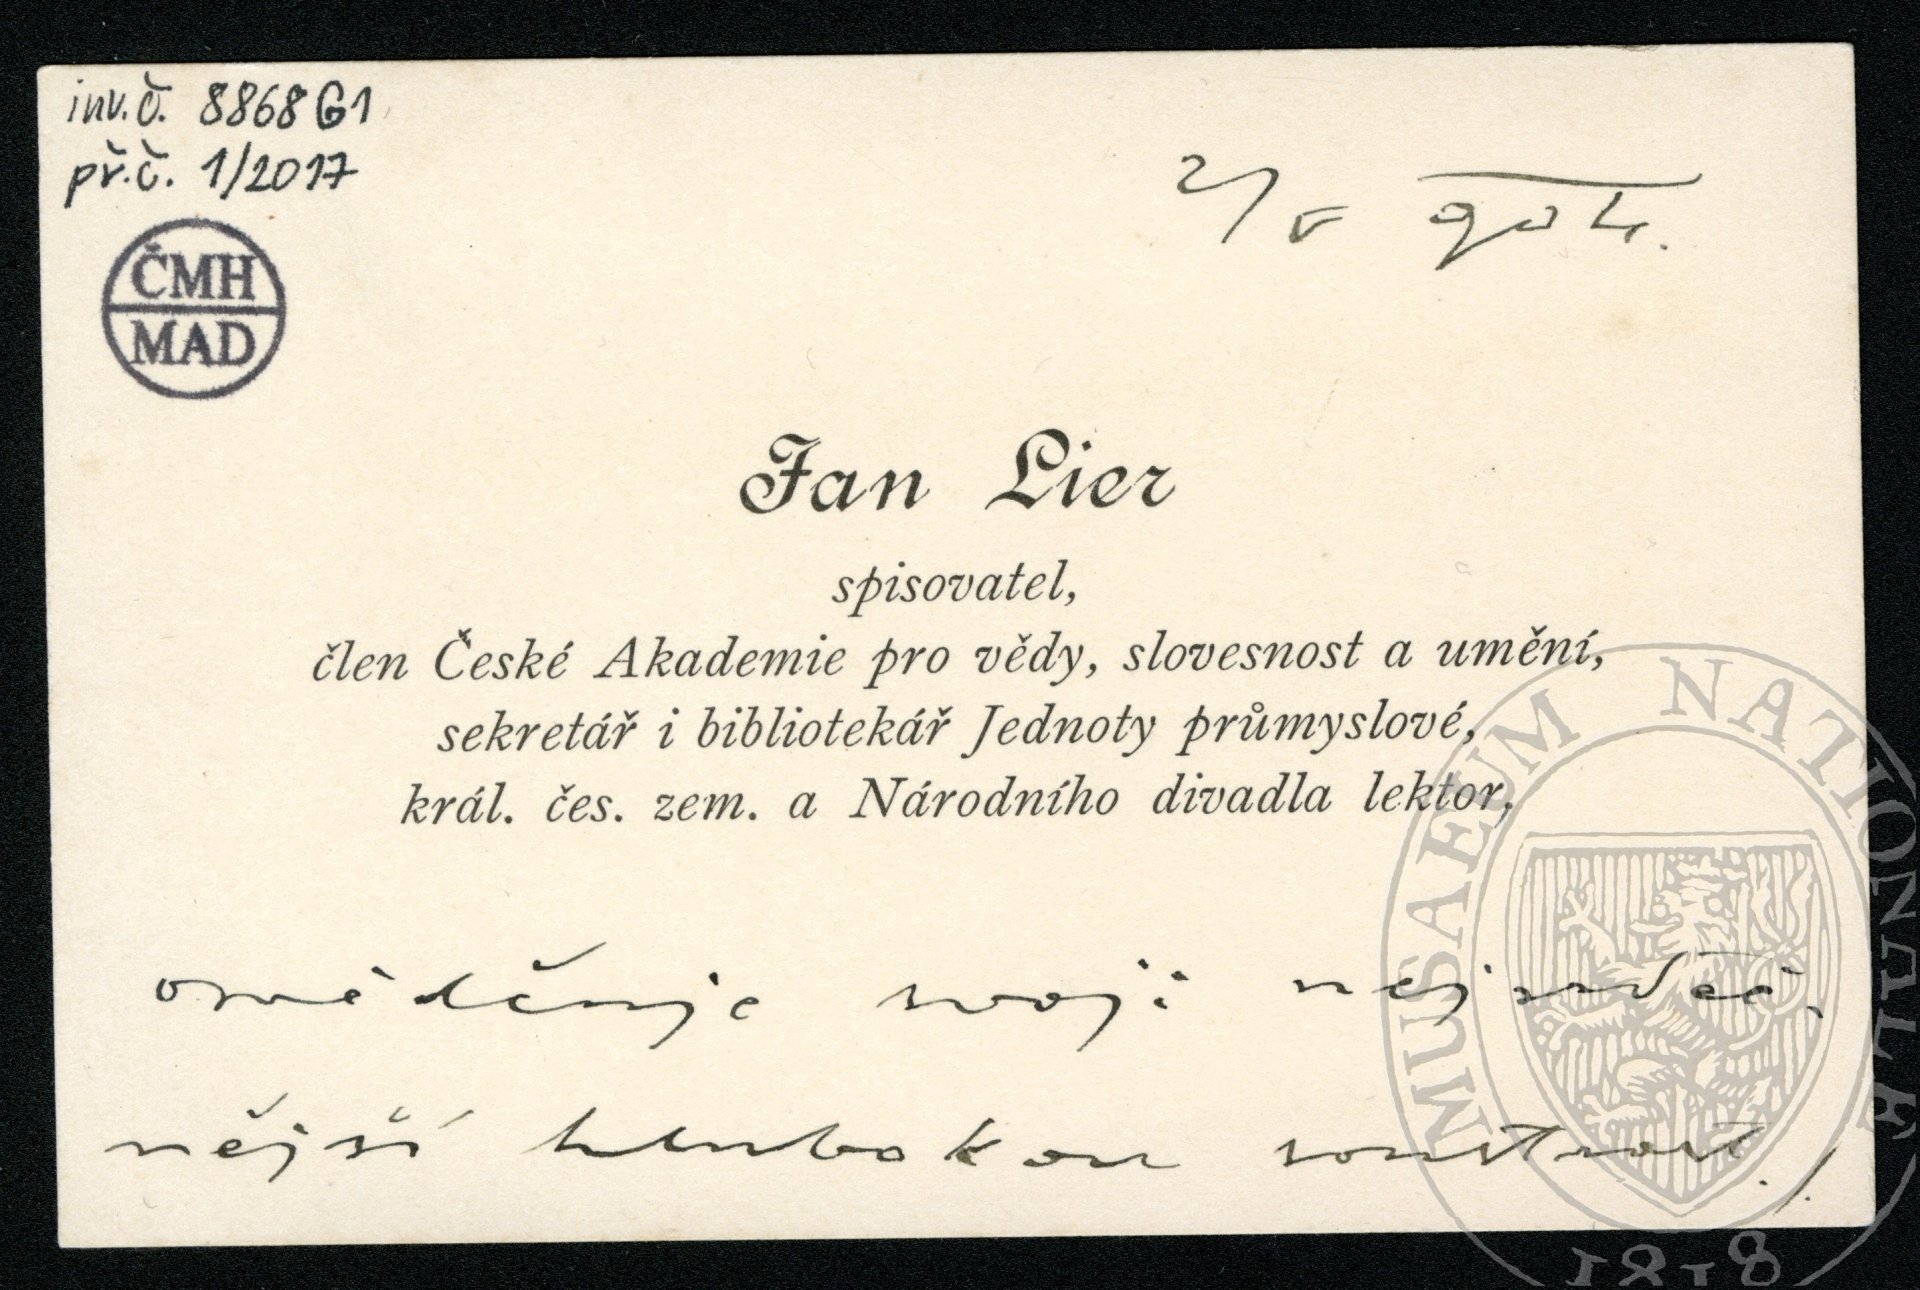 inv.č. 8868 G1
př.č. 1/2017
ČMH
MAD
2/V 904.
Jan Lier
spisovatel,
člen České Akademie pro vědy, slovesnost a umění,
sekretář i bibliotekář Jednoty průmyslové,
král. čes. zem. a Národního divadla lektor,
osvědčuje svoji nejsrdeč-
nější hlubokou soustrast.
MUSAEUM NATIONALE
1818